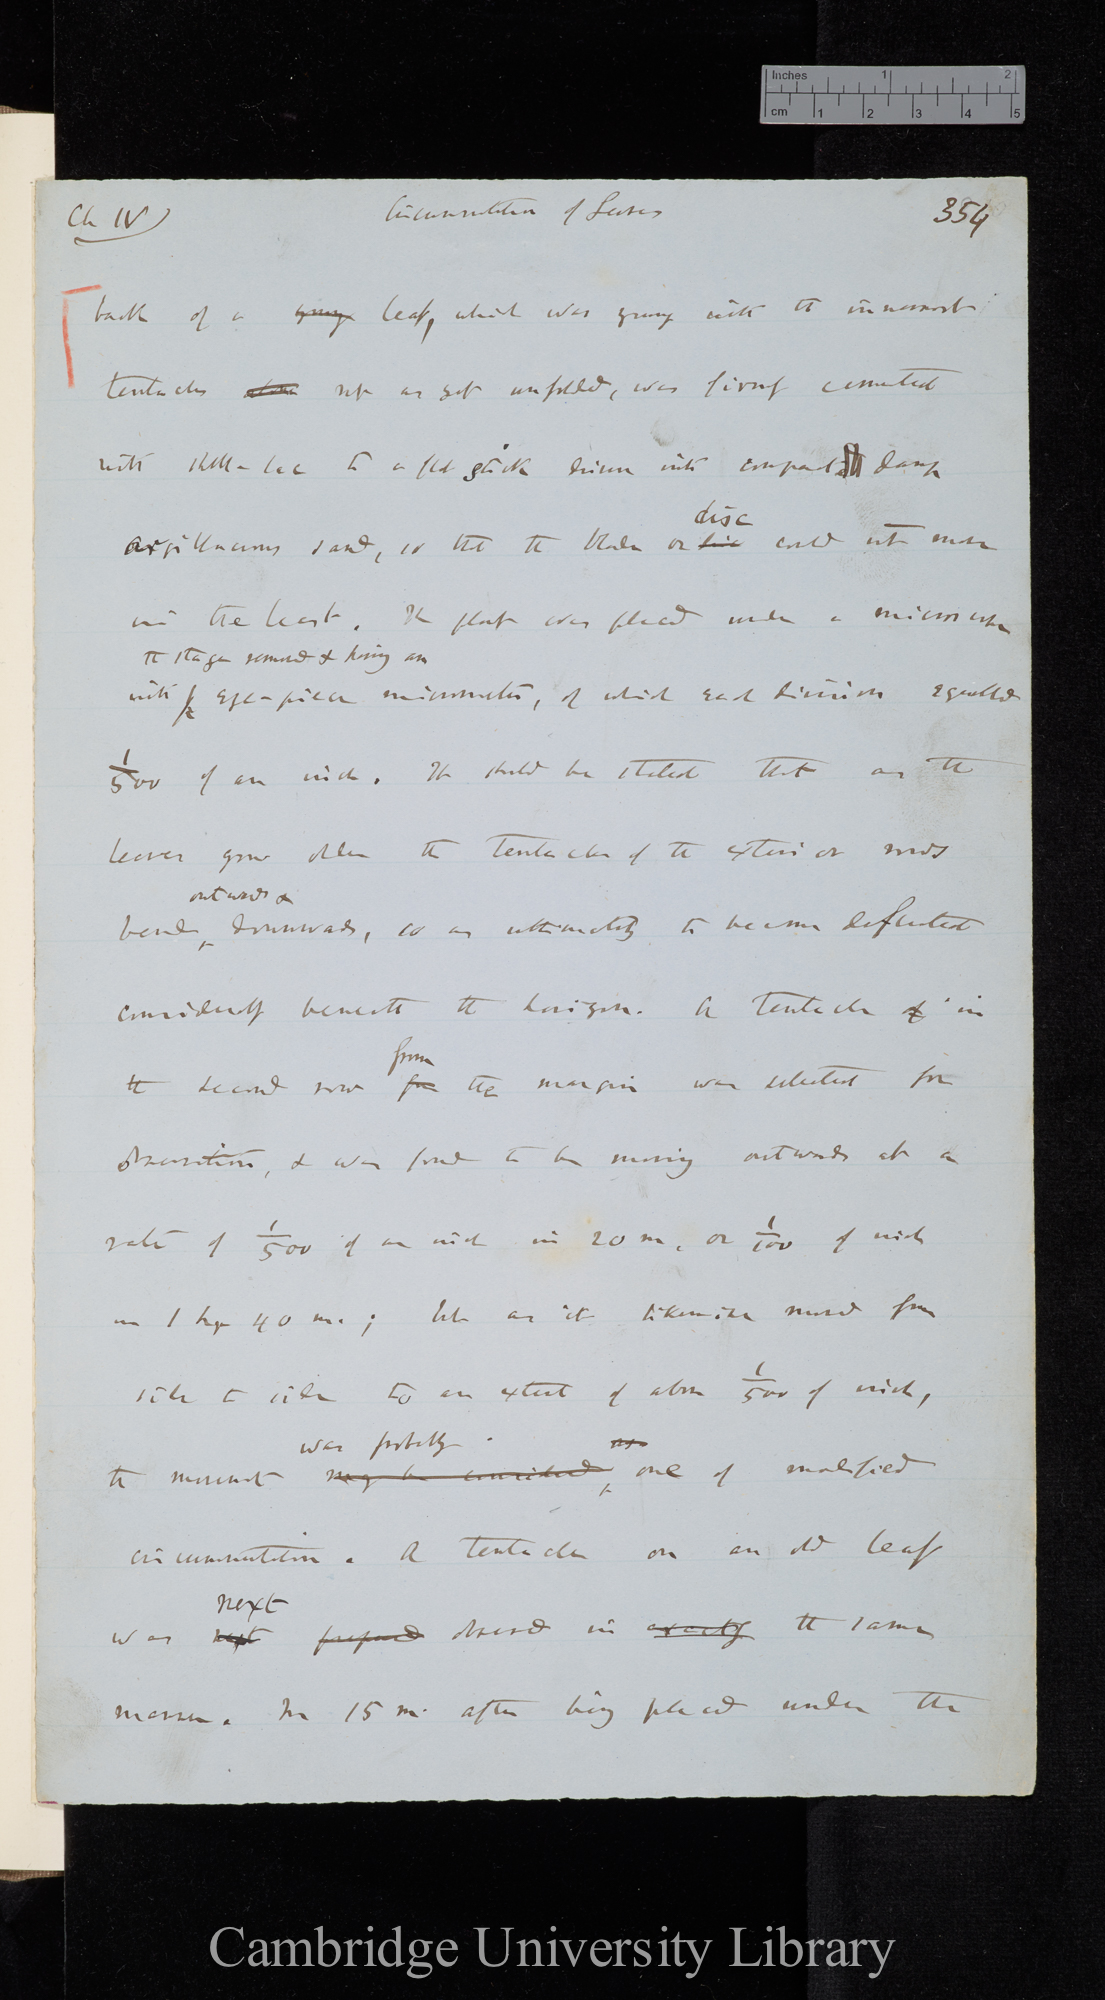 Inches 1 2
cm 1 2 3 4 5
Ch IV) Circumnutation of Leaves 354
back of a young leaf, which was young with the innermost
tentacles not as yet unfolded, was firmly cemented
with shell-lac to a flat stick driven into compact damp
disc
argillaceous sand, so that the blade or could not move
in the least. The plant was placed under a microscope
the stage removed & having an
with eye-piece micrometer, of which each division equalled
1/500 of an inch. It should be stated that as the
leaves grow older the tentacles of the exterior rows
outwards &
bend downwards, so as ultimately to become deflected
considerably beneath the horizon. A tentacle of in
from
the second row for the margin was selected for
observation, & was found to be moving outwards at a
rate of 1/500 of an inch in 20 m, or 1/100 of inch
in 1 h 40 m.; but as it likewise moved from
side to side to an extent of above 1/500 of inch,
was probably as
the movement may be considered one of modified
circumnutation. A tentacle on an old leaf
next
was next prepared observed in exactly the same
manner. In 15 m. after being placed under the
Cambridge University Library